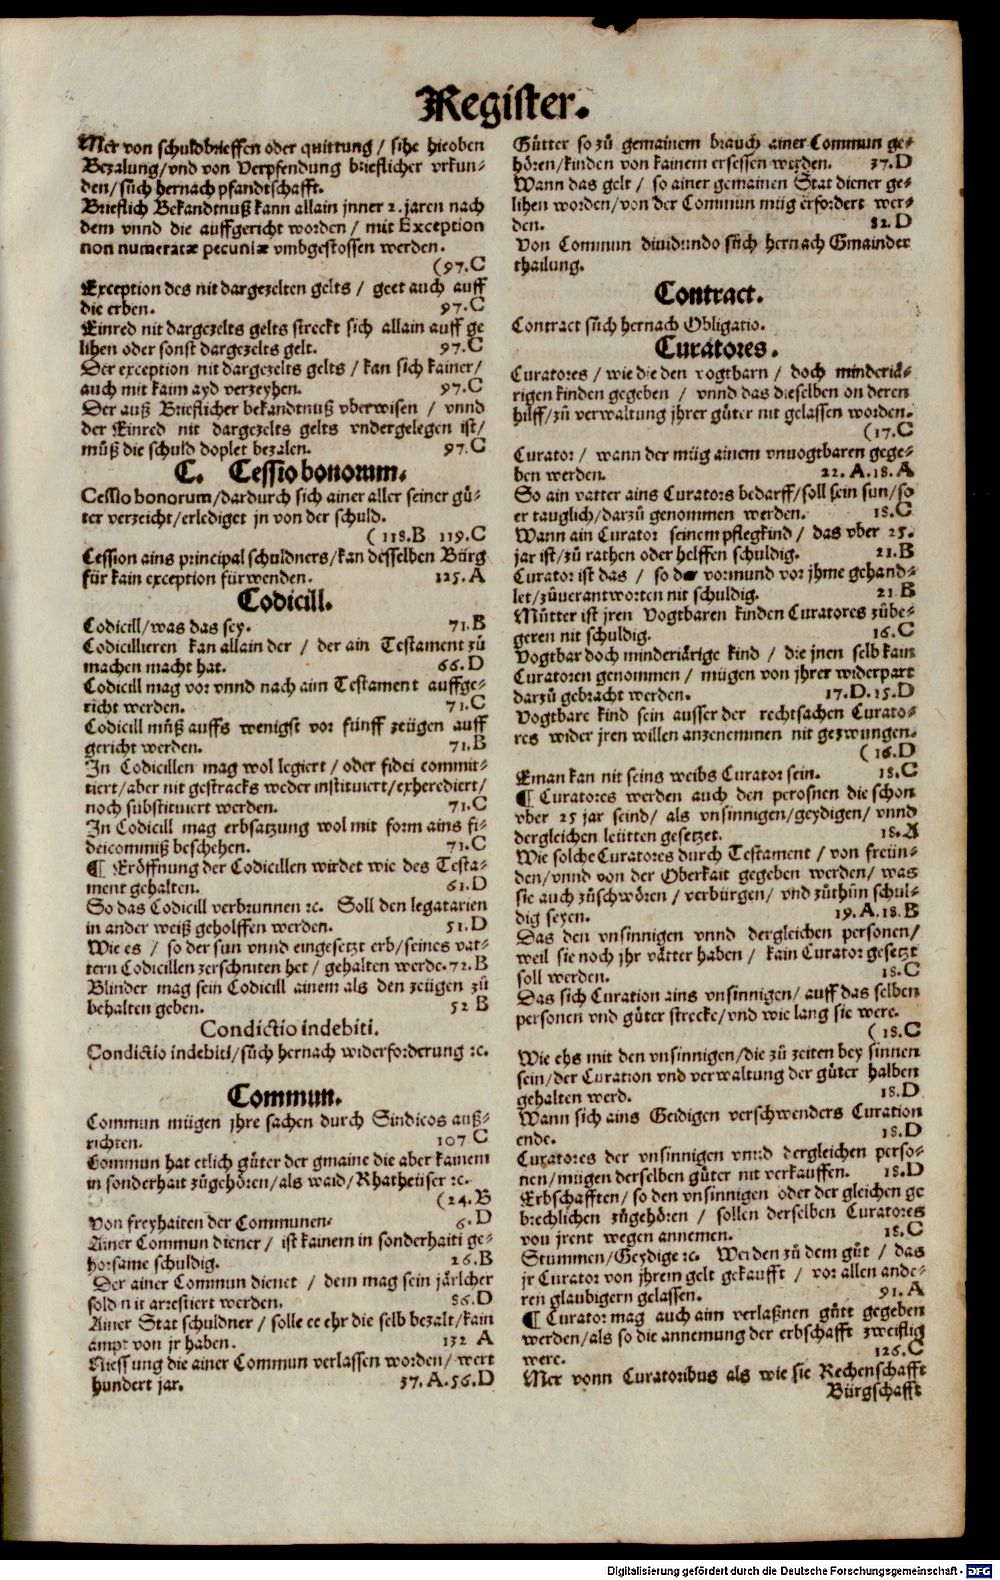 Register.
Mer von schuldbrieffen oder quittung / sihe hieoben
Bezalung/vnd von Verpfendung brieflicher vrkun-
den/sůch hernach pfandtschafft.
Brieflich Bekandtnuß kann allain jnner 2. jaren nach
dem vnnd die auffgericht worden / mit Exception
non numeratæ pecuniæ vmbgestossen werden.
(97.C
Exception des nit dargezelten gelts / geet auch auff
die erben. 97.C
Einred nit dargezelts gelts streckt sich allain auff ge
lihen oder sonst dargezelts gelt. 97.C
Der exception nit dargezelts gelts / kan sich kainer/
auch mit kaim ayd verzeyhen. 97.C
Der auß Brieflicher bekandtnuß vberwisen / vnnd
der Einred nit dargezelts gelts vndergelegen ist/
můß die schuld doplet bezalen. 97.C
C. Cessio bonorum.
Cessio bonorum/dardurch sich ainer aller seiner gů-
ter verzeicht/erlediget jn von der schuld.
(118.B 119.C
Cession ains principal schuldners/kan desselben Bürg
für kain exception fürwenden. 125.A
Codicill.
Codicill/was das sey. 71.B
Codicillieren kan allain der / der ain Testament zů
machen macht hat. 66.D
Codicill mag vor vnnd nach aim Testament auffge-
richt werden. 71.C
Codicill můß auffs wenigst vor fünff zeügen auff
gericht werden. 71.B
In Codicillen mag wol legiert / oder fidei commit-
tiert/aber nit gestracks weder instituiert/exherediert/
noch substituiert werden. 71.C
In Codicill mag erbsatzung wol mit form ains fi-
deicommiß beschehen. 71.C
¶ Eröffnung der Codicillen wirdet wie des Testa-
ment gehalten. 61.D
So das Codicill verbrunnen ꝛc. Soll den legatarien
in ander weiß geholffen werden. 51.D
Wie es / so der sun vnnd eingesetzt erb/seines vat-
tern Codicillen zerschniten het / gehalten werde. 72.B
Blinder mag sein Codicill ainem als den zeügen zů
behalten geben. 52 B
Condictio indebiti.
Condictio indebiti/sůch hernach widerforderung ꝛc.
Commun.
Commun mügen jhre sachen durch Sindicos auß-
richten. 107 C
Commun hat etlich güter der gmaine die aber kainem
in sonderhait zůgehören/als waid/Rhatheüser ꝛc.
(24.B
Von freyhaiten der Communen. 6.D
Ainer Commun diener / ist kainem in sonderhaiti ge-
horsame schuldig. 26.B
Der ainer Commun dienet / dem mag sein järlcher
sold nit arrestiert werden. 86.D
Ainer Stat schuldner / solle ee ehr die selb bezalt/kain
ämpt von jr haben. 132 A
Niessung die ainer Commun verlassen worden/ wert
hundert jar. 37.A.56.D
Gütter so zů gemainem brauch ainer Commun ge-
hören/kinden von kainem ersessen werden. 37.D
Wann das gelt / so ainer gemainen Stat diener ge-
lihen worden/von der Commun müg erfordert wer-
den. 82.D
Von Commun diuidundo sůch hernach Gmainder
thailung.
Contract.
Contract sůch hernach Obligatio.
Curatores.
Curatores / wie die den vogtbarn / doch minderjä-
rigen kinden gegeben / vnnd das dieselben on deren
hilff/zů verwaltung jhrer güter nit gelassen worden.
(17.C
Curator / wann der müg ainem vnuogtbaren gege-
ben werden. 22.A.18.A
So ain vatter ains Curators bedarff/soll sein sun/so
er tauglich/darzů genommen werden. 18.C
Wann ain Curator seinem pflegkind / das vber 25.
jar ist/zů rathen oder helffen schuldig. 21.B
Curator ist das / so der vormund vor jhme gehand-
let/zůuerantworten nit schuldig. 21 B
Můtter ist jren Vogtbaren kinden Curatores zůbe-
geren nit schuldig. 16.C
Vogtbar doch minderjärige kind / die jnen selb kain
Curatoren genommen / mügen von jhrer widerpart
darzů gebracht werden. 17.D.15.D
Vogtbare kind sein ausser der rechtsachen Curato-
res wider jren willen anzenemmen nit gezwungen.
(16.D
Eman kan nit seins weibs Curator sein. 18.C
¶ Curatores werden auch den perosnen die schon
vber 25 jar seind/ als vnsinnigen/geydigen/ vnnd
dergleichen leütten gesetzet. 18.A
Wie solche Curatores durch Testament / von freün-
den/vnnd von der Oberkait gegeben werden/ was
sie auch zůschwören / verbürgen/ vnd zůthůn schul-
dig seyen. 19.A.18.B
Das den vnsinnigen vnnd dergleichen personen/
weil sie noch jhr vätter haben / kain Curator gesetzt
soll werden. 18.C
Das sich Curation ains vnsinnigen/ auff das selben
personen vnd güter strecke/vnd wie lang sie were.
(18.C
Wie ehs mit den vnsinnigen/die zů zeiten bey sinnen
sein/der Curation vnd verwaltung der güter halben
gehalten werd. 18.D
Wann sich ains Geidigen verschwenders Curation
ende. 18.D
Curatores der vnsinnigen vnnd dergleichen perso-
nen/mügen derselben güter nit verkauffen. 18.D
Erbschafften/ so den vnsinnigen oder der gleichen ge
brechlichen zůgehören / sollen derselben Curatores
von jrent wegen annemen. 18.C
Stummen/Geydige ꝛc. Werden zů dem gůt / das
jr Curator von jhrem gelt gekaufft / vor allen ande-
ren glaubigern gelassen. 91.A
¶ Curator mag auch aim verlaßnen gůtt gegeben
werden/als so die annemung der erbschafft zweiflig
were. 126.C
Mer vonn Curatoribus als wie sie Rechenschafft
Bürgschafft
Digitalisierung gefördert durch die Deutsche Forschungsgemeinschaft - DFG